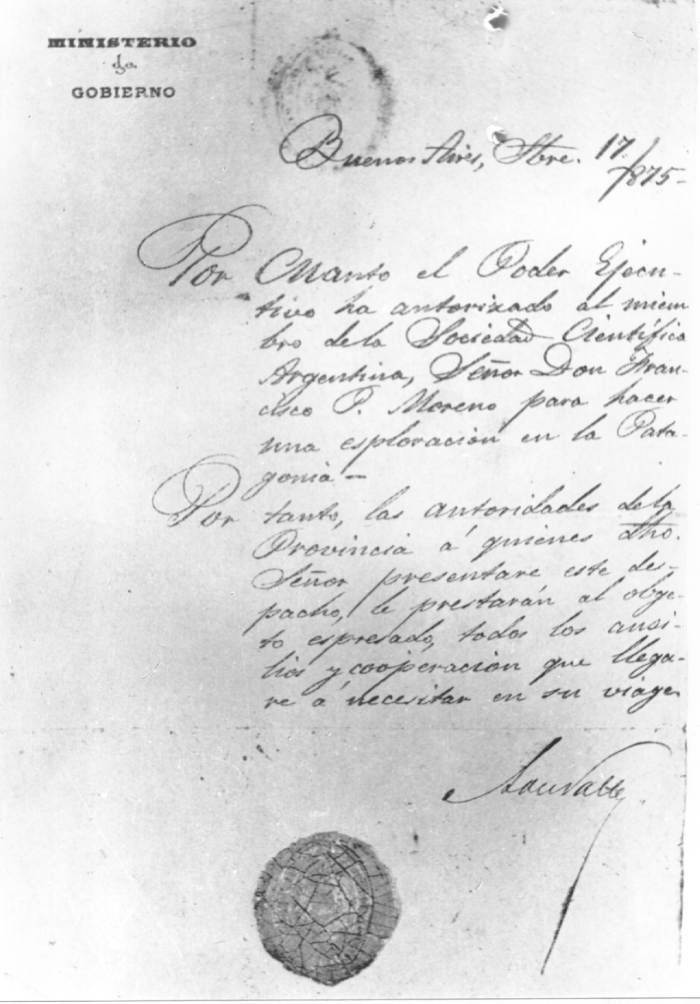 MINISTERIO
de
GOBIERNO
Buenos Aires, Stbre. 17/875-
Por Cuanto el Poder Ejecu-
tivo ha autorizado al miem
bro de la Sociedad Científica
Argentina, Señor Don Fran-
cisco P. Moreno para hacer
una esploracion en la Pata-
gonia-
Por tanto, las autoridades de la
Provincia á quienes dho.
Señor presentare este des-
pacho, le prestarán al obge-
to espresado, todos los ausi-
lios y cooperación que llega-
re á necesitar en su viage